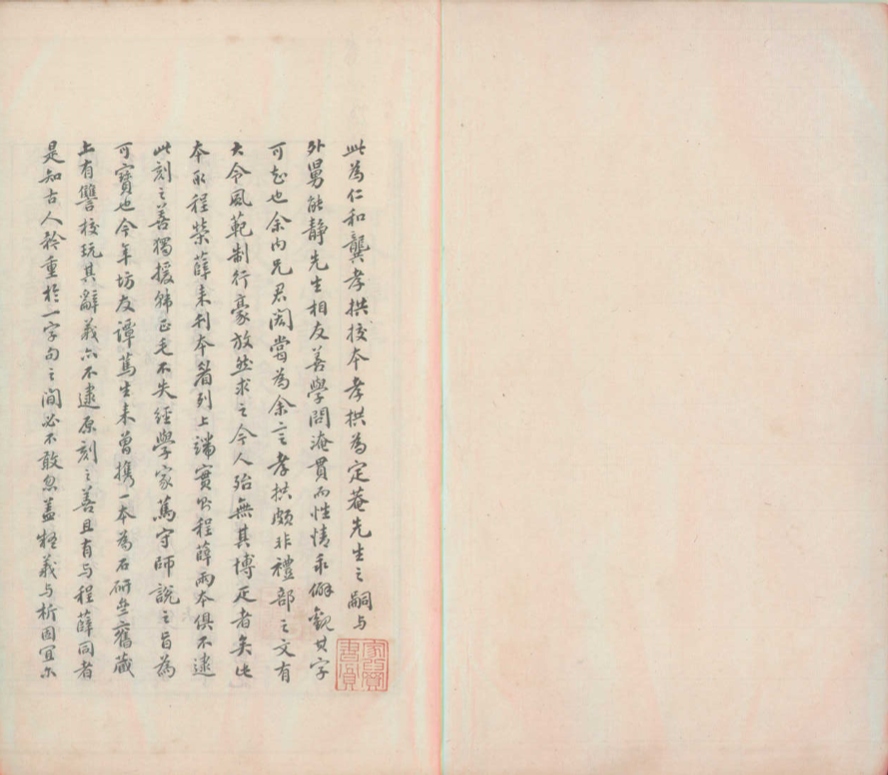 此為仁和龔孝拱挍本孝拱為定菴先生之嗣与
外舅能静先生相友善學問淹貫而性情乖僻觀其字
可知也余内兄君閎嘗為余言孝拱頗非禮部之文有
大令風範制行豪放然求之今人殆無其博疋者矣此
本取程榮薛来刊本眷列上端實則程薛兩本俱不逮
此刻之善獨援稱正毛不失經學家篤守師説之旨為
可寳也今年坊友譚篤生来曽携一本為石研齋舊藏
上有讐校玩其辭義亦不逮原刻之善且有与程薛同者
是知古人矜重於一字句之間必不敢忽蓋疑義与析固宜尔